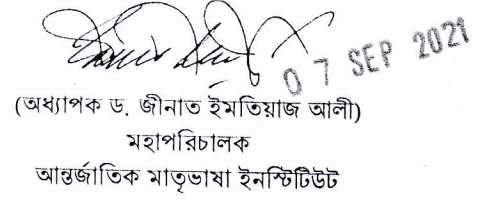 07 SEP 2021
(অধ্যাপক ড. জীনাত ইমতিয়াজ আলী)
মহাপরিচালক
আন্তর্জাতিক মাতৃভাষা ইনস্টিটিউট